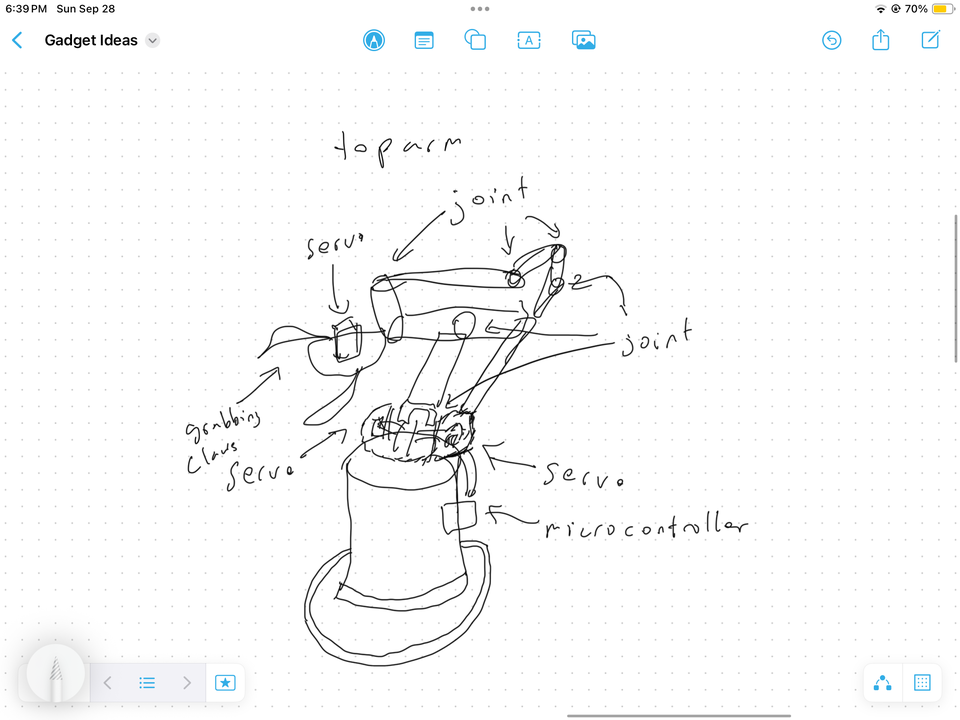 6:39 PM Sun Sep 28
70%
Gadget Ideas
A
top arm
joint
servo
joint
grabbing
claws
servo
servo
microcontroller